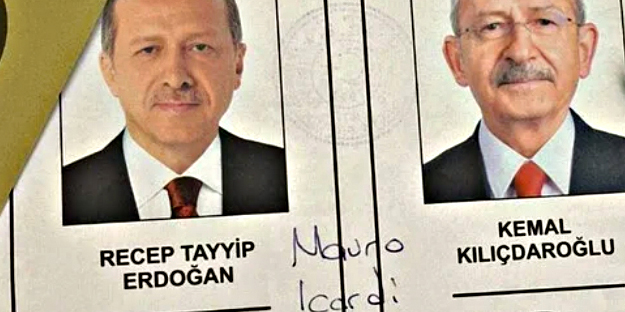 RECEP TAYYİP
ERDOĞAN
Mauro
Icardi
KEMAL
KILIÇDAROĞLU